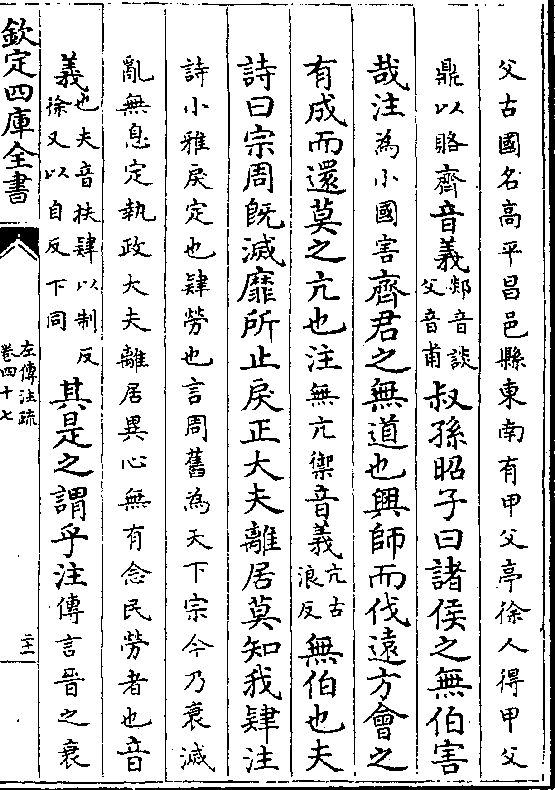 父古國名高平昌邑縣東南有甲父亭徐人得甲父
鼎以賂齊音義郯音談父音甫叔孫昭子曰諸侯之無伯害
哉注為小國害齊君之無道也興師而伐遠方會之
有成而還莫之亢也注無亢禦音義亢古浪反無伯也夫
詩曰宗周既滅靡所止戾正大夫離居莫知我肄注
詩小雅戾定也肄勞也言周舊為天下宗今乃衰滅
亂無息定執政大夫離居異心無有念民勞者也音
義也夫音扶肆以制反徐又以自反下同其是之謂乎注傳言晉之衰
欽定四庫全書
左傳注疏
卷四十七
二十一